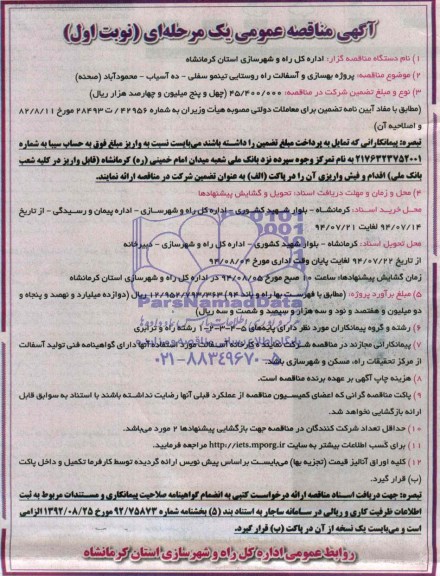 آگهی مناقصه عمومی یک مرحله‌ای (نوبت اول)
۱) نام دستگاه مناقصه گزار: اداره کل راه و شهرسازی استان کرمانشاه
۲) موضوع مناقصه: پروژه بهسازی و آسفالت راه روستایی تینمو سفلی - ده آسیاب - محمودآباد (صحنه)
۳) نوع و مبلغ تضمین شرکت در مناقصه: ۴۵/۴۰۰/۰۰۰ (چهل و پنج میلیون و چهارصد هزار ریال)
(مطابق با مفاد آیین نامه تضمین برای معاملات دولتی مصوبه هیأت وزیران به شماره ۴۲۹۵۶ / ت ۲۸۴۹۳ مورخ ۸۲/۸/۱۱
و اصلاحیه آن)
تبصره: پیمانکارانی که تمایل به پرداخت مبلغ تضمین را داشته باشند می‌بایست نسبت به واریز مبلغ فوق به حساب سیبا به شماره
۲۱۷۶۳۲۳۷۵۲۰۰۱ به نام تمرکز وجوه سپرده نزد بانک ملی شعبه میدان امام خمینی (ره) کرمانشاه (قابل واریز در کلیه شعب
بانک ملی) اقدام و فیش واریزی آن را در پاکت (الف) به عنوان تضمین شرکت در مناقصه ارائه نمایند.
۴) محل و زمان و مهلت دریافت اسناد: تحویل و گشایش پیشنهادها
محل خرید اسناد: کرمانشاه - بلوار شهید کشوری - اداره کل راه و شهرسازی - اداره پیمان و رسیدگی - از تاریخ
۹۴/۰۷/۱۴ لغایت ۹۴/۰۷/۲۱
محل تحویل اسناد: کرمانشاه - بلوار شهید کشوری - اداره کل راه و شهرسازی - دبیرخانه
از تاریخ ۹۴/۰۷/۲۲ لغایت پایان وقت اداری مورخ ۹۴/۰۸/۰۴
زمان گشایش پیشنهادها: ساعت ۱۰ صبح مورخ ۹۴/۰۸/۰۵ در اداره کل راه و شهرسازی استان کرمانشاه
۵) مبلغ برآورد پروژه: (مطابق با فهرست بها راه و باند ۹۴) ۱۲/۹۵۲/۷۹۳/۳۶۳ ریال (دوازده میلیارد و نهصد و پنجاه و
دو میلیون و هفتصد و نود و سه هزار و سیصد و شصت و سه ریال)
۶) رشته و گروه پیمانکاران مورد نظر دارای پایه‌های ۵-۴-۳-۲-۱ رشته راه و ترابری
۷) پیمانکارانی مجازند در مناقصه شرکت نمایند که کارخانه آسفالت مورد استفاده آنها دارای گواهینامه فنی تولید آسفالت
از مرکز تحقیقات راه، مسکن و شهرسازی باشد.
۸) هزینه چاپ آگهی بر عهده برنده مناقصه است.
۹) پاکت مناقصه گرانی که اعضای کمیسیون مناقصه از عملکرد قبلی آنها رضایت نداشته باشند با استناد به سوابق قابل
ارائه بازگشایی نخواهد شد.
۱۰) حداقل تعداد شرکت کنندگان در مناقصه جهت بازگشایی پیشنهادها ۲ مورد می‌باشد.
۱۱) برای کسب اطلاعات بیشتر به سایت http://iets.mporg.ir مراجعه فرمایید.
۱۲) کلیه اوراق آنالیز قیمت (تجزیه بها) می‌بایست بر اساس پیش نویس ارائه گردیده توسط کارفرما تکمیل و داخل پاکت
(ب) قرار گیرد.
تبصره: جهت دریافت اسناد مناقصه ارائه درخواست کتبی به انضمام گواهینامه صلاحیت پیمانکاری و مستندات مربوط به ثبت
اطلاعات ظرفیت کاری و ریالی در سامانه ساجار به استناد بند (۵) بخشنامه شماره ۹۲/۷۵۸۷۳ مورخ ۱۳۹۲/۰۸/۲۵ الزامی
است و می‌بایست یک نسخه از آن در پاکت (ب) قرار گیرد.
روابط عمومی اداره کل راه و شهرسازی استان کرمانشاه
ParsNamadData
۰۲۱-۸۸۳۴۹۶۷۰-۵